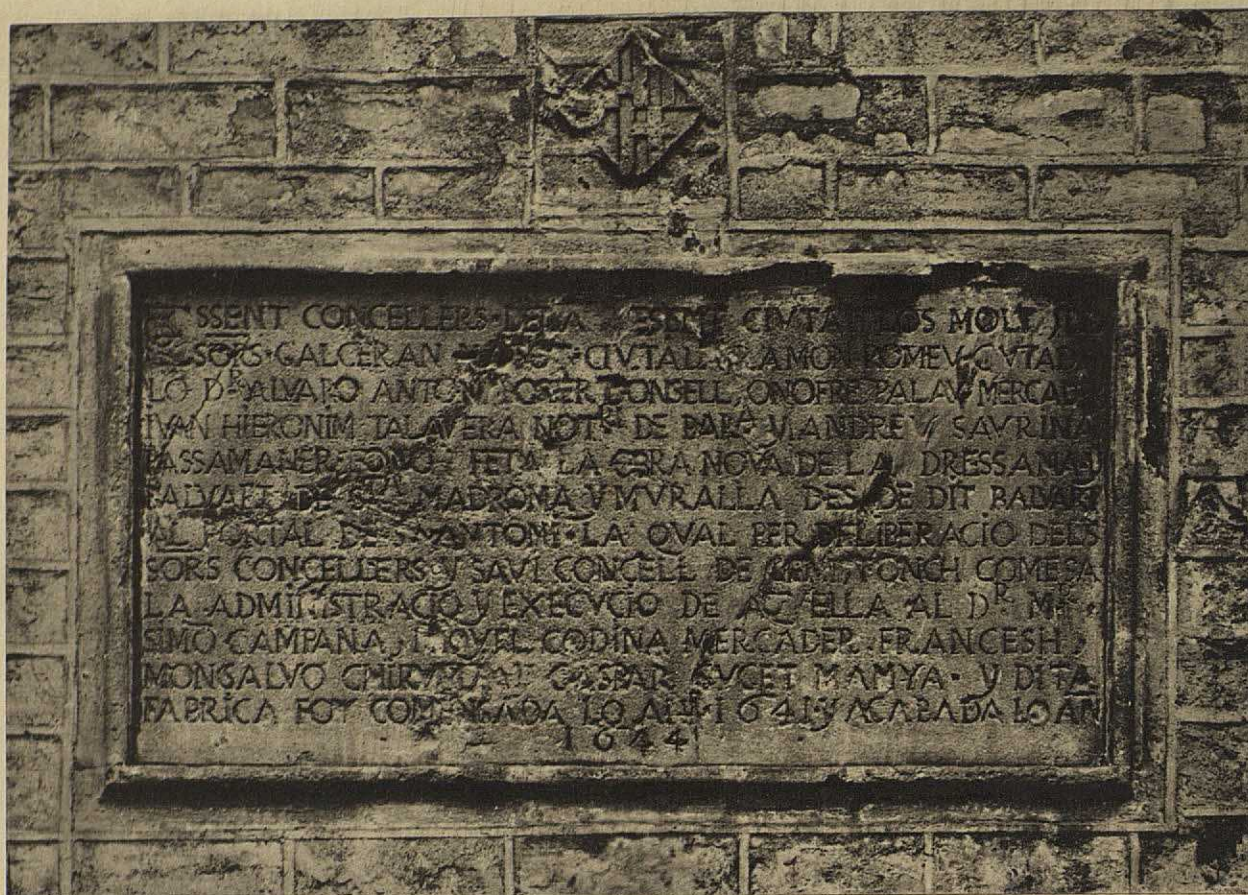 ESSENT CONCELLERS DE LA CIVTAT LOS MOLT
SORS GALCERAN CIVTADA RAMON ROMEV CIVTADA
LO Dʀ ALVARO ANTONI BOSER DONSELL ONOFRE PALAV MERCADER
IVAN HIERONIM TALAVERA NOTʀ DE BARᴬ Y ANDREV SAVRINA
PASSAMANER FONCH FETA LA OBRA NOVA DE LA DRESSANA
BALVART DE Sᵀᴬ MADRONA Y MVRALLA DES DE DIT BALVART
AL PORTAL DE Sᵀ ANTONI LA QVAL PER DELIBERACIO DELS
SORS CONCELLERS Y SAVI CONCELL DE CENT FONCH COMESA
LA ADMINISTRACIO Y EXECVCIO DE AQVELLA AL Dʀ Mʀ
SIMO CAMPANA, MIQVEL CODINA MERCADER FRANCESH
MONSALVO GASPAR Y DITA
FABRICA FOY COMENSADA LO ANY 1641 Y ACABADA LO AN
1644